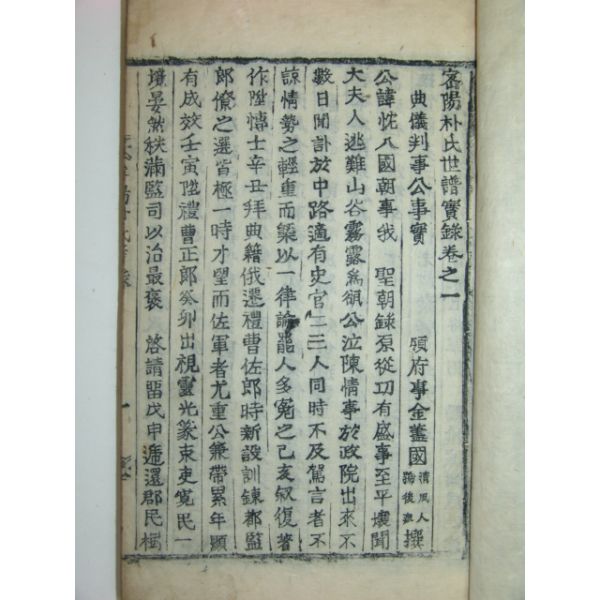 密陽朴氏世譜實錄卷之一
典儀判事公事實 領府事金藎國 清風人 號後瘳 撰
公諱忱八國朝事我 聖朝錄原從功有盛事至平壤聞
大夫人逃難山谷霧露爲領公泣陳情事於政院出來不
數日聞訃於中路適有史官二三人同時不及駕言者不
諒情勢之輕重而槩以一律論罷人多寃之己亥敍復著
作陞博士辛丑拜典籍俄遷禮曹佐郎時新設訓鍊都監
郎僚之選皆極一時才望而佐軍者尤重公兼帶累年顯
有成效壬寅陞禮曹正郎癸卯出視靈光篆束吏寬民一
境晏然秩滿監司以治最褒 啓請留戊申遞還郡民極
一